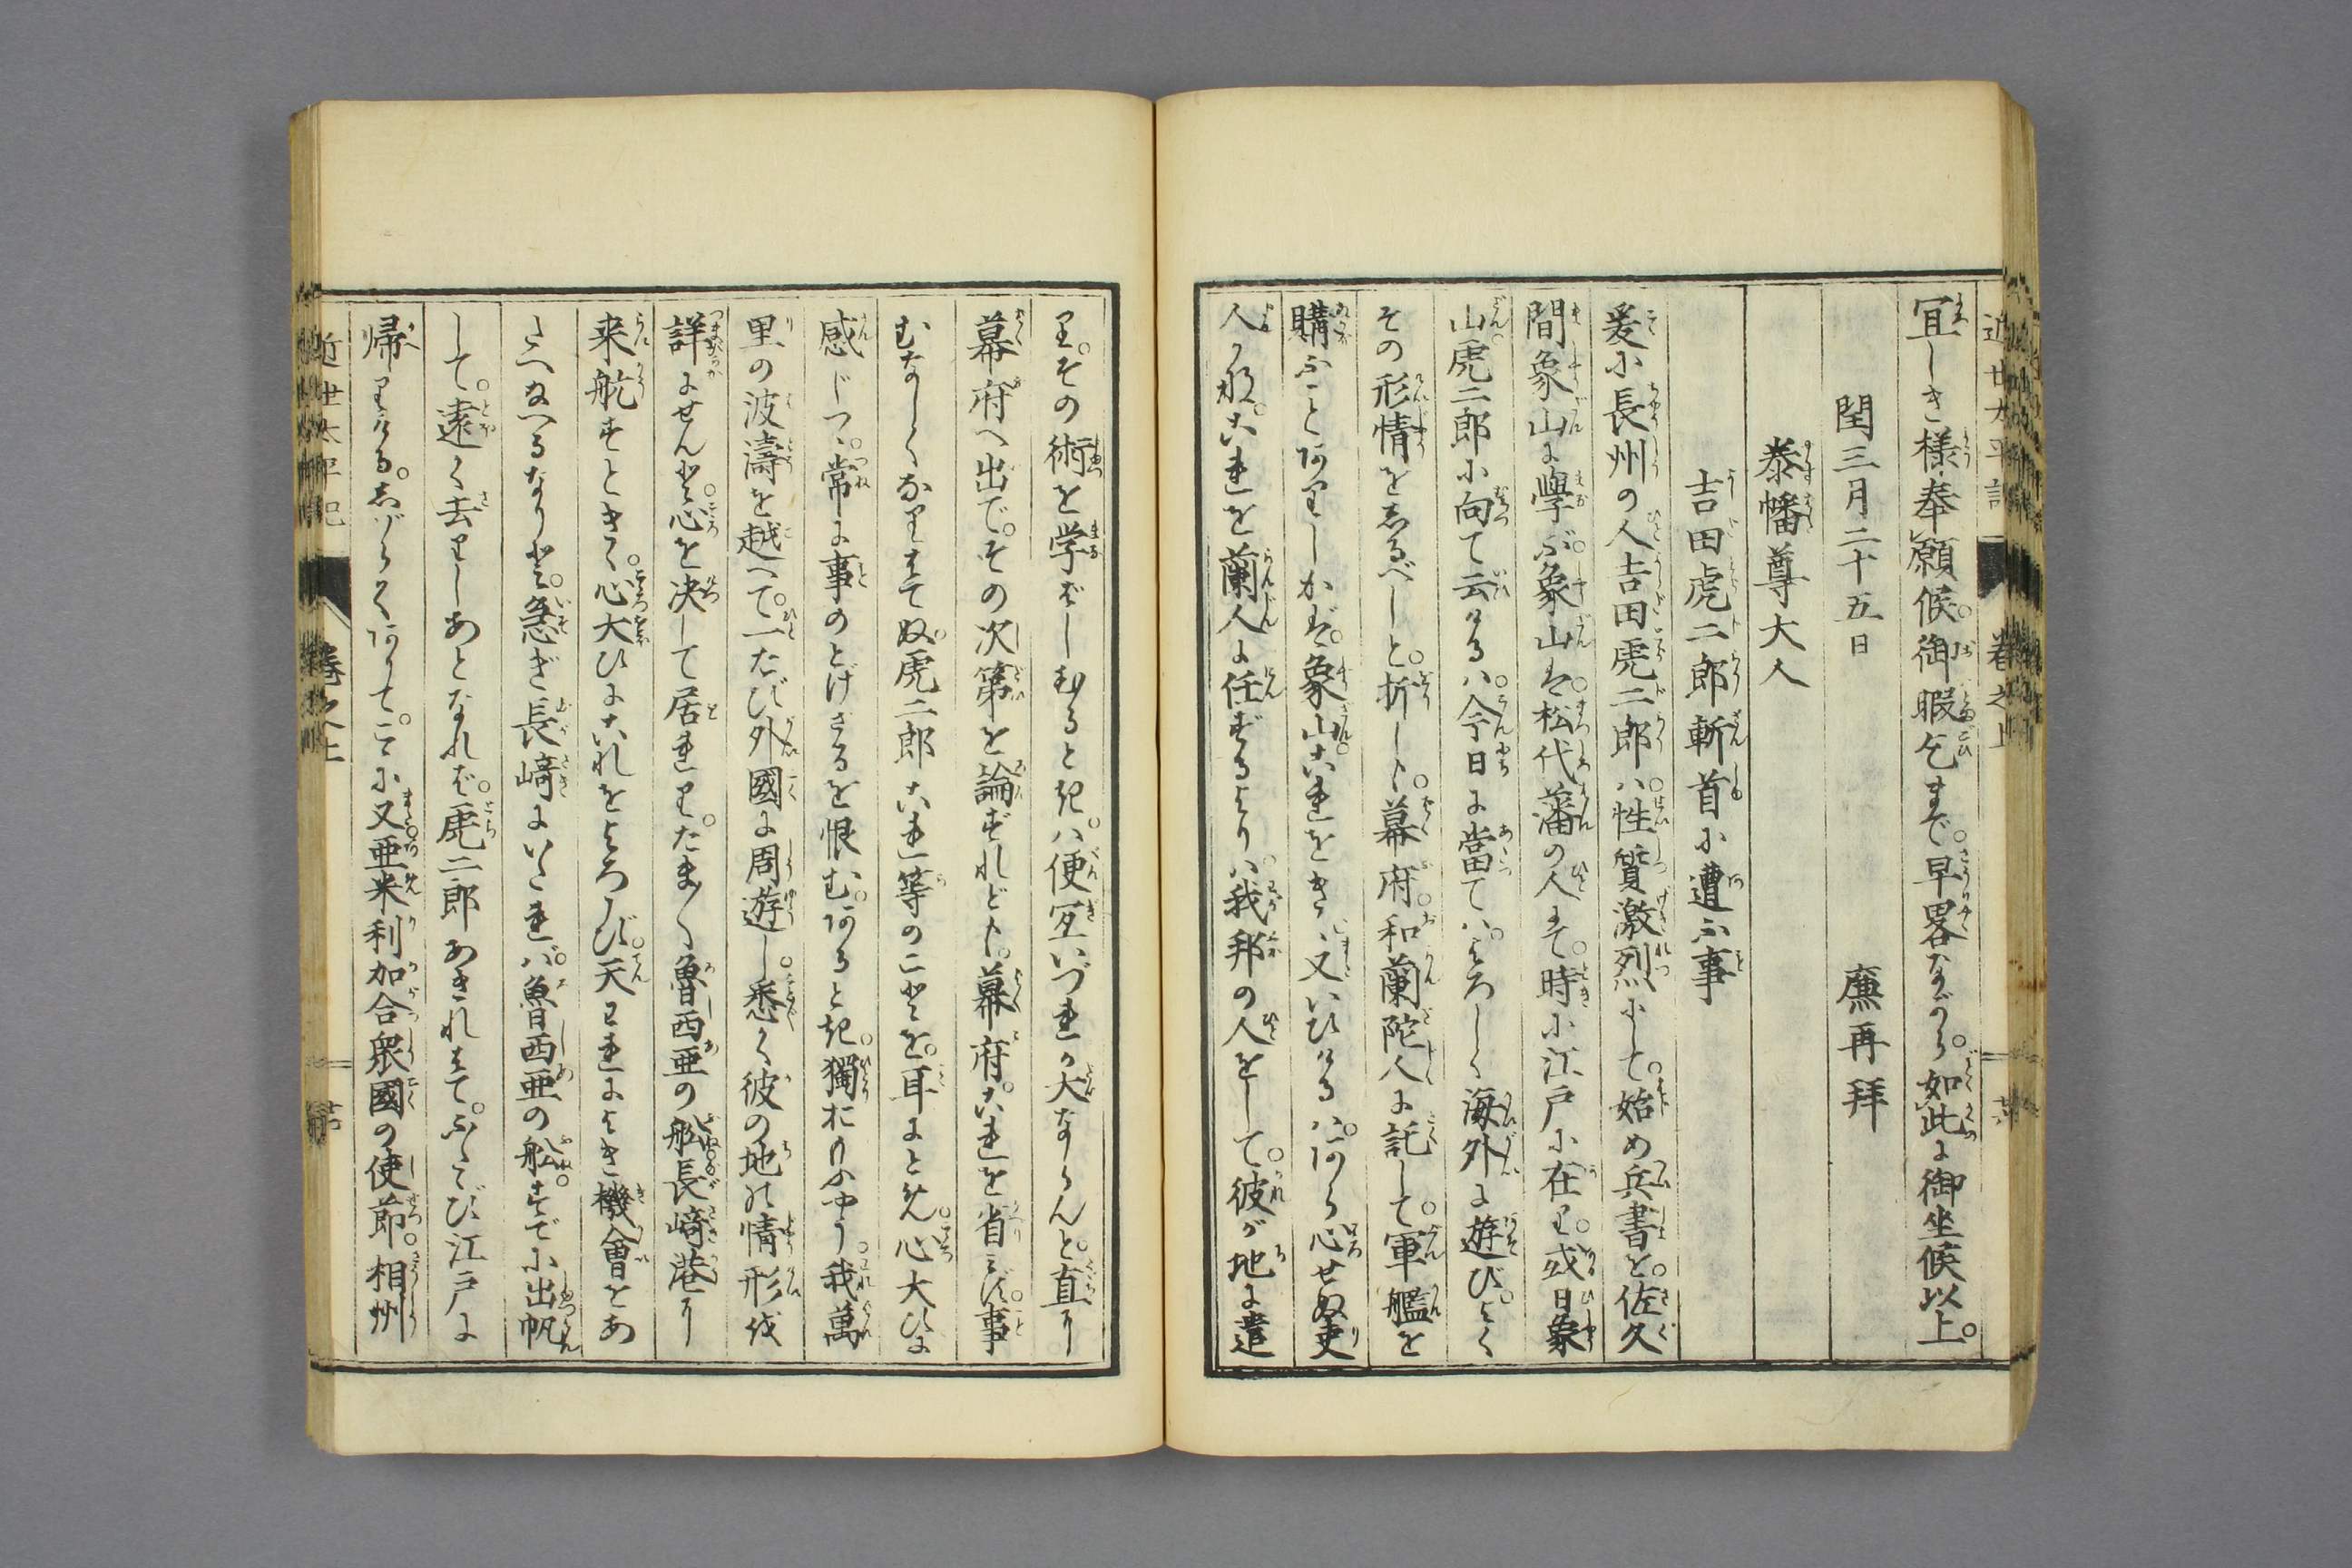 近世太平記 巻之上
宜しき様奉願候。御暇乞まで。早畧ながら。如此に御坐候以上。
閏三月二十五日 廉再拜
泰幡尊大人
吉田虎二郎斬首に遭ふ事
爰に長州の人吉田虎二郎ハ。性質激烈にして。始め兵書を。佐久
間象山に學ぶ。象山は。松代藩の人にて。時に江戸に在り。或日象
山。虎二郎に向て云けるハ。今日に當てハ。よろしく海外に遊び。よく
その形情をしるべしと。折しも。幕府。和蘭陀人に託して。軍艦を
購ふことありしかば。象山。これをきゝ、又いひけるハ。何ら心せぬ吏
人かな。これを蘭人に任ずるよりハ。我邦の人をして。彼が地に遣
り。その術を学ばしむるときハ。便宜いづれか大ならんと。直に
幕府へ出で。その次第を論ずれども。幕府。これを省みず。事
むなしくなりにて。虎二郎これ等のことを。耳にとめ。心大ひに
感じつゝ。常に事のとげざるを恨む。あるとき。獨おもふやう。我萬
里の波濤を越へて。一たび外國に周遊し。悉く彼の地の情形を
詳にせんと。心を決して居れり。たま〱魯西亜の船長﨑港に
来舶すときく。心大ひにこれをよろこび。天われによき機會をあ
たへたまへるなりと。急ぎ長﨑にいたれバ。魯西亜の船。すでに出帆
して。遠く去りしあとなれば。虎二郎あきれはて。ふたゝび江戸に
帰りける。しばらくありて。こゝに又亜米利加合衆國の使節。相州
近世太平記 巻之上